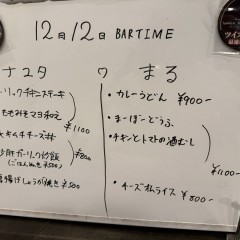 12月12日 BARTIME
ナユタ
ワ
まる
ーリックチキンステーキ
ももみそマヨ和え
¥1100
キムチチーズ#
ガーリック炒飯
(ごはんぬき ¥500)
¥800
唐揚げしょうが焼き ¥500
・カレーうどん ¥900-
・まーぼーどうふ
・チキンとトマトの酒むし
¥1100-
・チーズオムライス ¥800-
ツイス